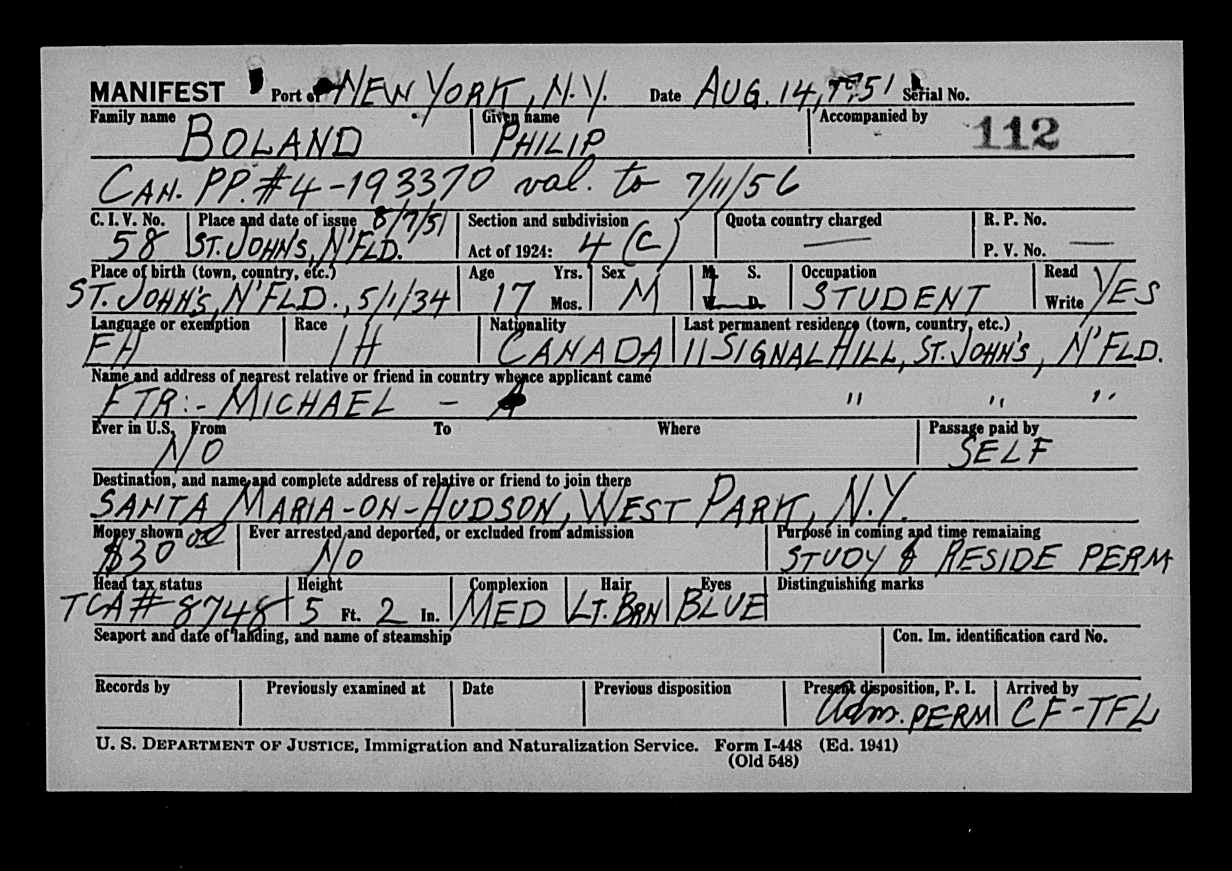 MANIFEST Port of NEW YORK, N.Y. Date AUG. 14, 1951 Serial No.
Family name Given name Accompanied by
BOLAND PHILIP 112
CAN. PP. #4-193370 val. to 7/11/56
C. I. V. No. Place and date of issue 8/7/51 Section and subdivision Quota country charged R. P. No.
58 ST. JOHN'S, N'FLD. Act of 1924: 4 (C) — P. V. No. —
Place of birth (town, country, etc.) Age Yrs. Sex M. S. Occupation Read
ST. JOHN'S, N'FLD., 5/1/34 17 Mos. M W. D. STUDENT Write YES
Language or exemption Race Nationality Last permanent residence (town, country, etc.)
EH IH CANADA 11 SIGNAL HILL, ST. JOHN'S, N'FLD.
Name and address of nearest relative or friend in country whence applicant came
FTR:- MICHAEL - " " "
Ever in U.S. From To Where Passage paid by
NO SELF
Destination, and name and complete address of relative or friend to join there
SANTA MARIA-ON-HUDSON, WEST PARK, N.Y.
Money shown Ever arrested and deported, or excluded from admission Purpose in coming and time remaining
$30 NO STUDY & RESIDE PERM
Head tax status Height Complexion Hair Eyes Distinguishing marks
TCA# 8748 5 Ft. 2 In. MED LT. BRN BLUE
Seaport and date of landing, and name of steamship Con. Im. identification card No.
Records by Previously examined at Date Previous disposition Present disposition, P. I. Arrived by
Adm. PERM CF-TFL
U. S. DEPARTMENT OF JUSTICE, Immigration and Naturalization Service. Form I-448 (Ed. 1941)
(Old 548)